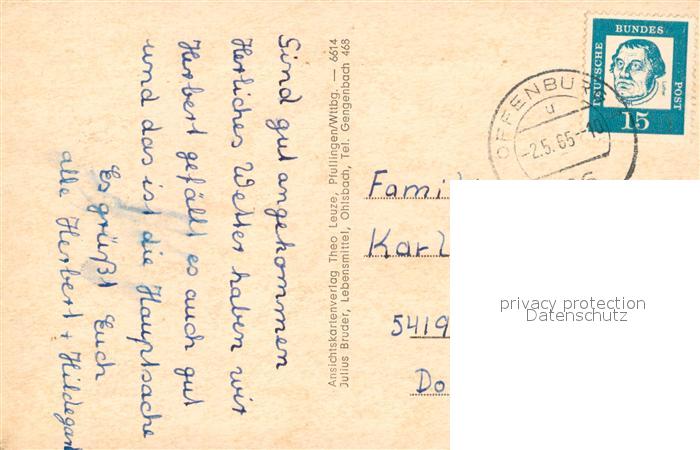 Sind gut angekommen
Herliches Wetter haben wir
Herbert gefällt es auch gut
und das ist die Hauptsache
Es grüßt Euch
alle Herbert + Hildegard
Ansichtskartenverlag Theo Leuze, Pfullingen/Wttbg. — 6614
Julius Bruder, Lebensmittel, Ohlsbach, Tel. Gengenbach 468
DEUTSCHE
BUNDES
POST
15
OFFENBURG
-2.5.65-10
Famil
Karl
5419
Do
privacy protection
Datenschutz